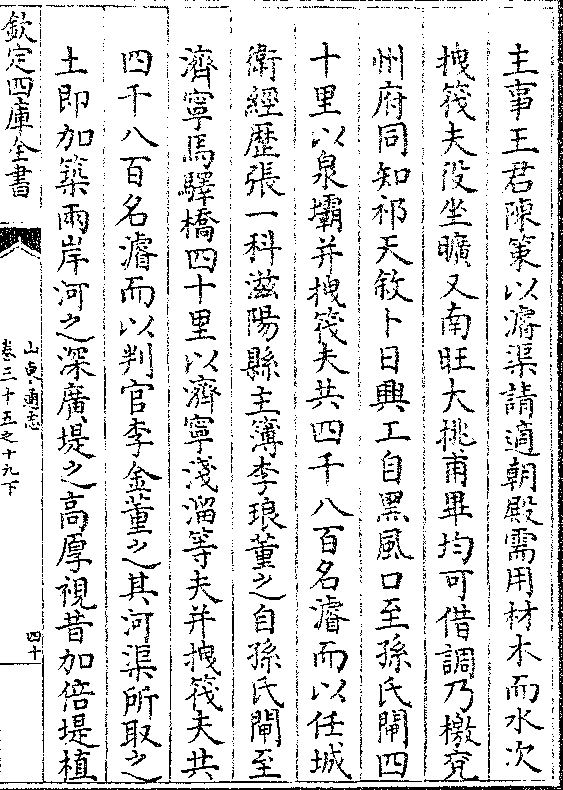 主事王君陳策以濬渠請適朝殿需用材木而水次
拽筏夫役坐曠又南旺大挑甫畢均可借調乃檄兖
州府同知祁天敘卜日興工自黑風口至孫氏閘四
十里以泉壩并拽筏夫共四千八百名濬而以任城
衛經歷張一科滋陽縣主簿李琅董之自孫氏閘至
濟寧馬驛橋四十里以濟寧淺溜等夫并拽筏夫共
四千八百名濬而以判官李金董之其河渠所取之
土即加築兩岸河之深廣堤之高厚視昔加倍堤植
欽定四庫全書
山東通志
卷三十五之十九下
四十